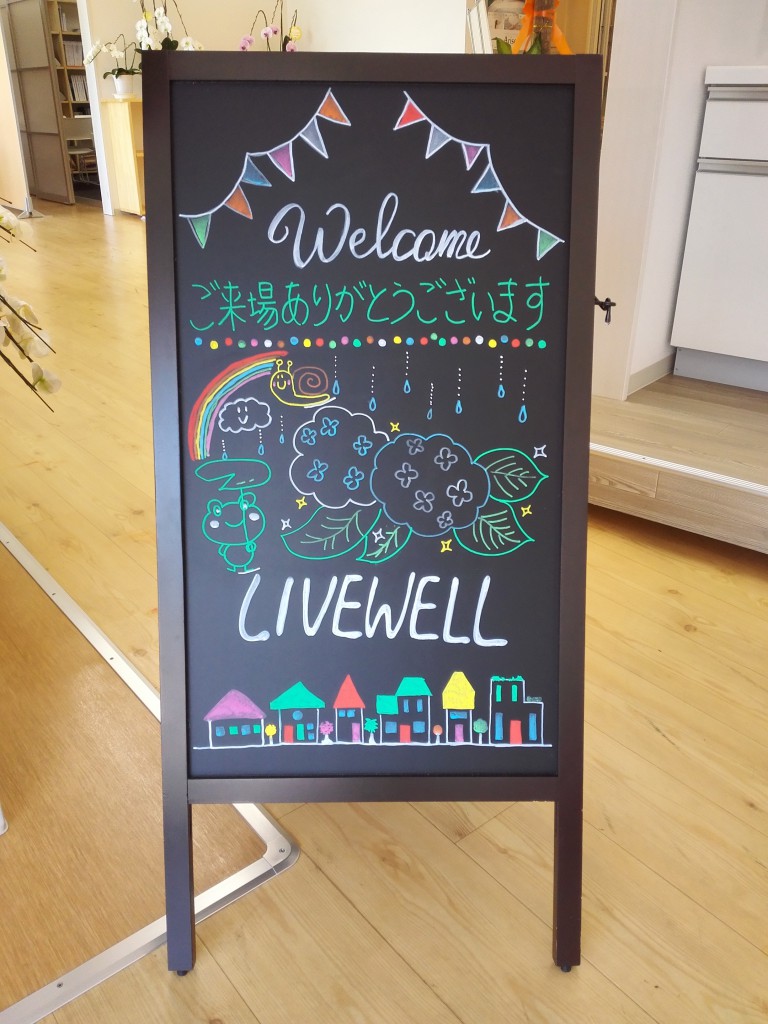 Welcome
ご来場ありがとうございます
LIVEWELL